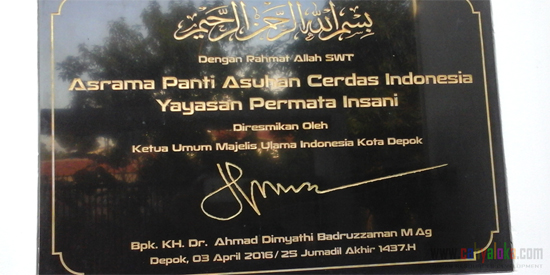 بسم الله الرحمن الرحيم
Dengan Rahmat Allah SWT
Asrama Panti Asuhan Cerdas Indonesia
Yayasan Permata Insani
Diresmikan Oleh
Ketua Umum Majelis Ulama Indonesia Kota Depok
Bpk. KH. Dr. Ahmad Dimyathi Badruzzaman M Ag
Depok, 03 April 2016 / 25 Jumadil Akhir 1437.H